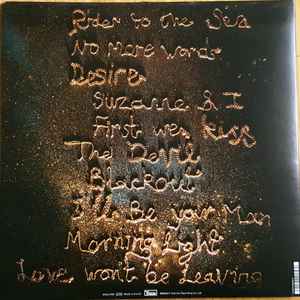 Rider to the Sea
No More Words
Desire
Suzanne & I
First We Kiss
The Devil
Blackout
I'll Be Your Man
Morning Light
Love Won't Be Leaving